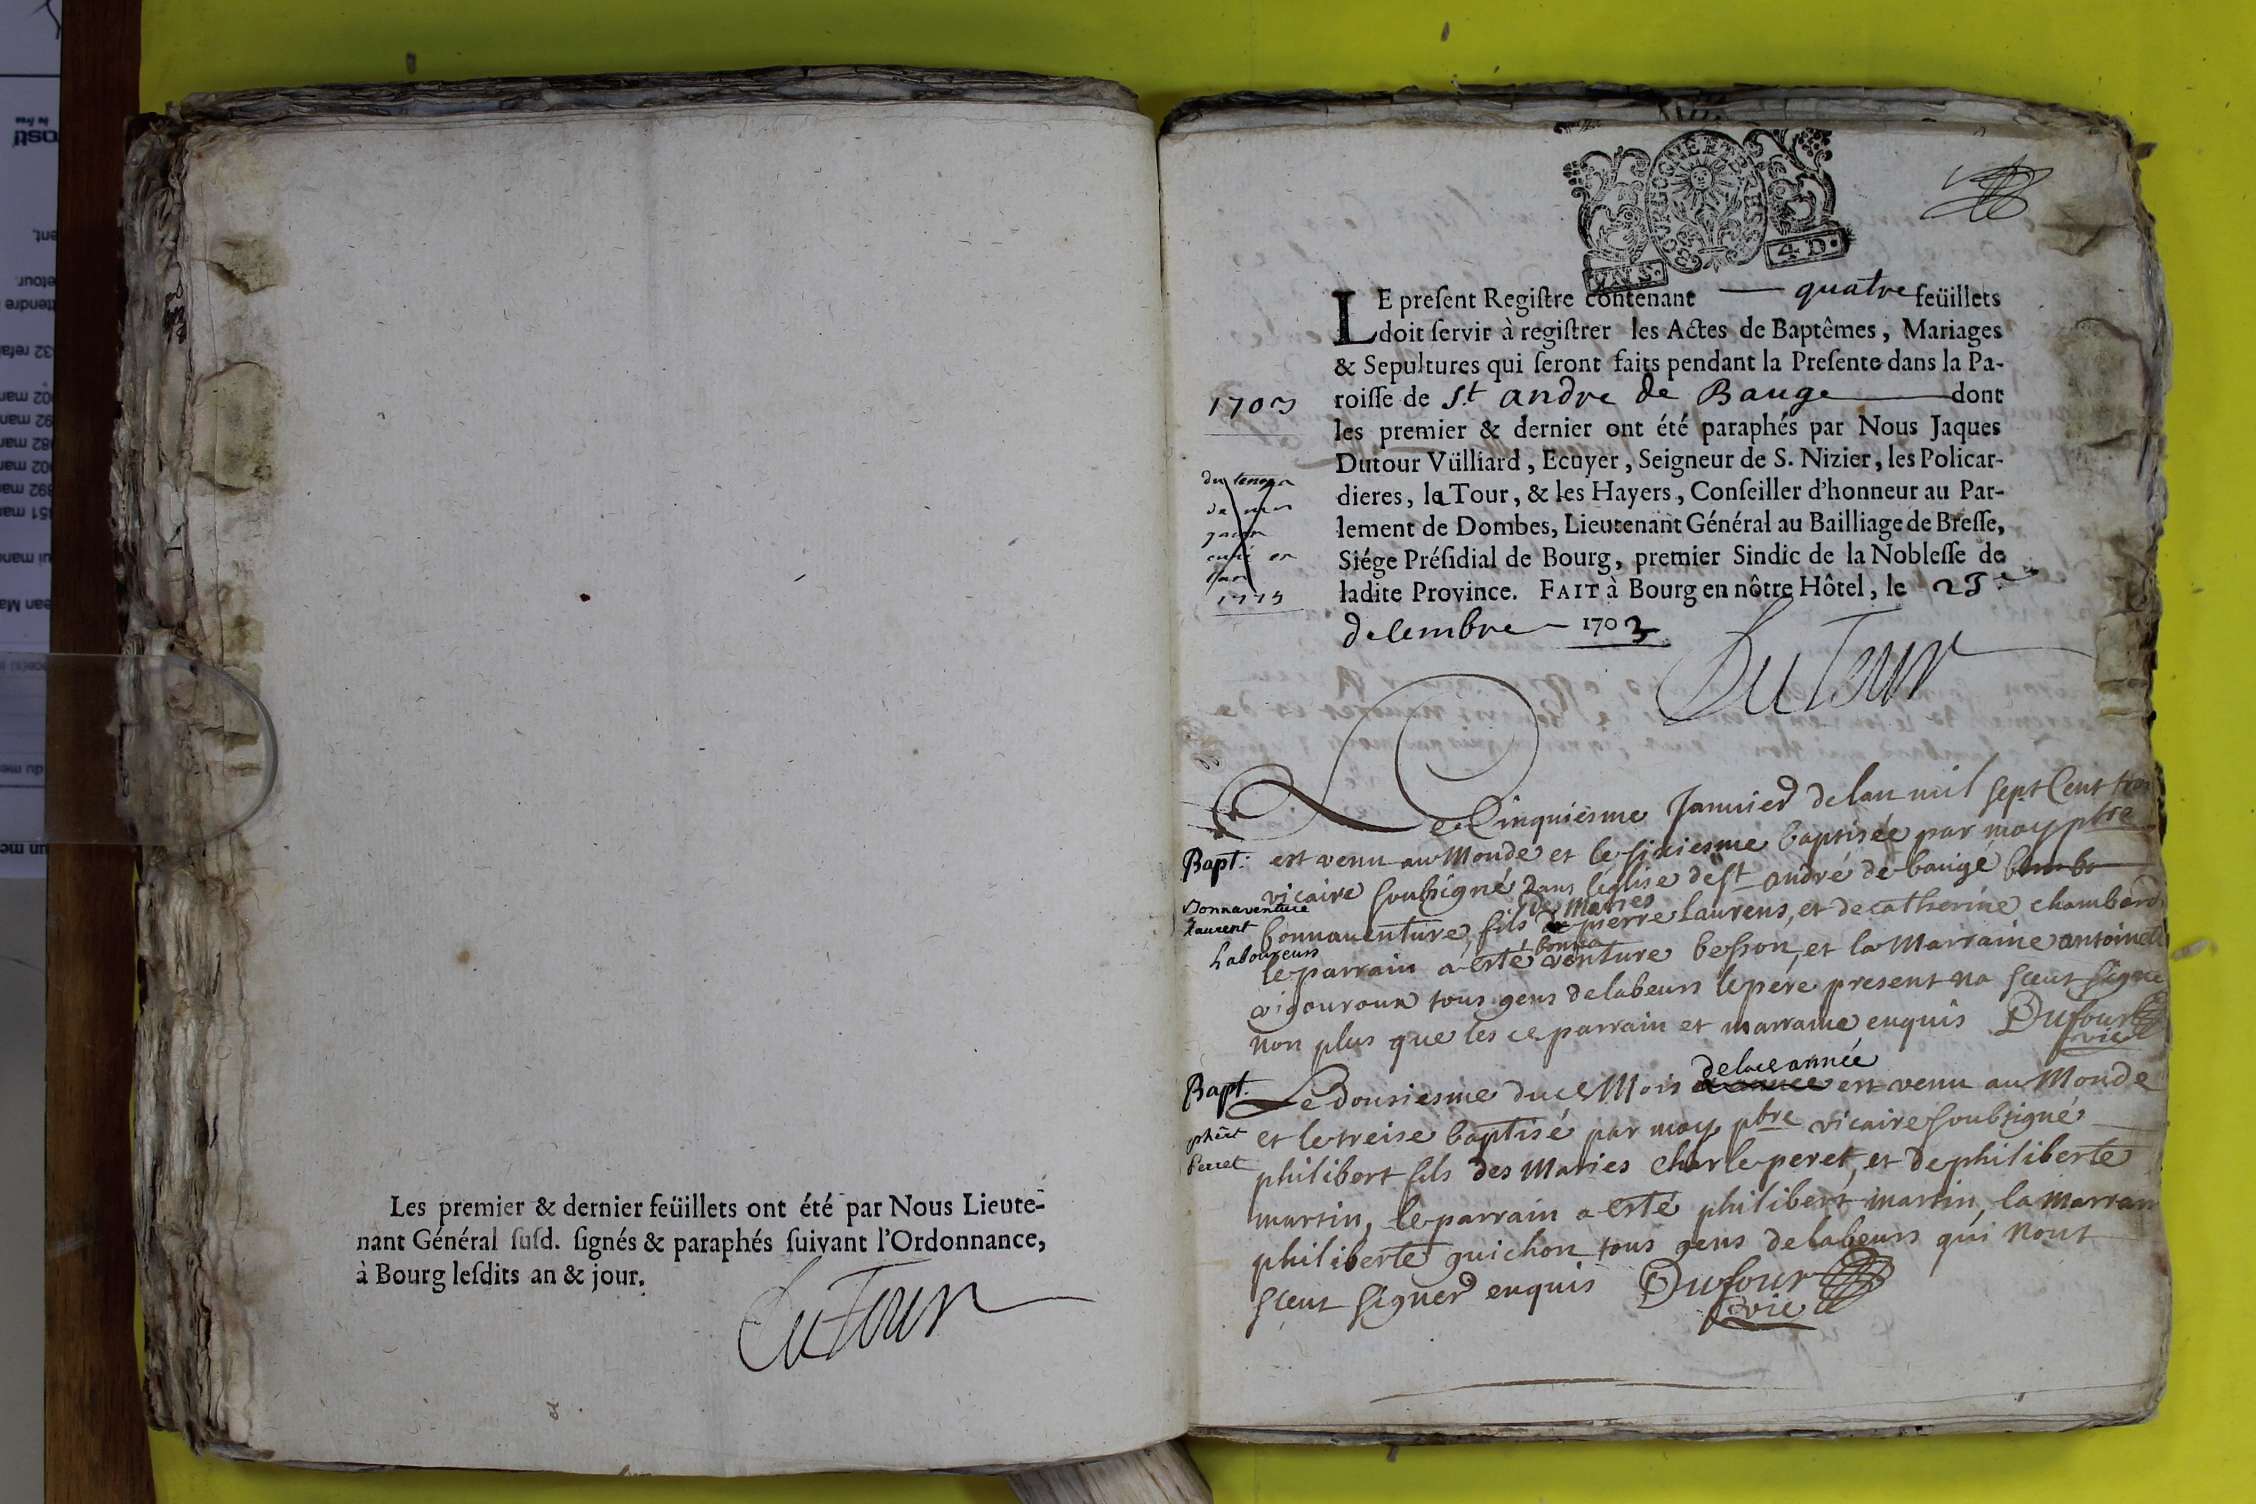 Les premier & dernier feüillets ont été par Nous Lieute-
nant Général ſuſd. ſignés & paraphés ſuivant l'Ordonnance,
à Bourg leſdits an & jour.
DuTour
4 D.
LE preſent Regiſtre contenant quatre feüillets
doit ſervir à regiſtrer les Actes de Baptêmes, Mariages
& Sepultures qui ſeront faits pendant la Preſente dans la Pa-
roiſſe de St andre de Bauge dont
les premier & dernier ont été paraphés par Nous Jaques
Dutour Vülliard, Ecuyer, Seigneur de S. Nizier, les Policar-
dieres, la Tour, & les Hayers, Conſeiller d'honneur au Par-
lement de Dombes, Lieutenant Général au Bailliage de Breſſe,
Siége Préſidial de Bourg, premier Sindic de la Nobleſſe de
ladite Province. FAIT à Bourg en nôtre Hôtel, le
decembre 1703
DuTour
1703
du temps
curé en
Le Cinquiesme Januier de lan mil sept Cent trois
Bapt: est venu au Monde et le sixiesme baptisée par moy pbre
vicaire soubsigné dans l'eglise de st andré de baugé
Bonnaventure
Laurent
Laboureurs
des Maries
bonnauenture fils pierre Laurens, et de catherine chambard
bonna
le parrain a esté venture besson, et la Marraine antoinete
vigouroux tous gens de labeurs le pere present na sceut signe
non plus que les ce parrain et marraine enquis Dufour
vic
Bapt.
de lace année
Le dousiesme duce Mois est venu au Monde
phért
Perret
et le treise baptisé par moy pbre vicaire soubsigné
philibert fils des Maries charle peret, et de philiberte
martin, le parrain a esté philibert martin, la marrain
philiberte guichon tous gens de labeurs qui nont
sceut signer enquis Dufour
vic